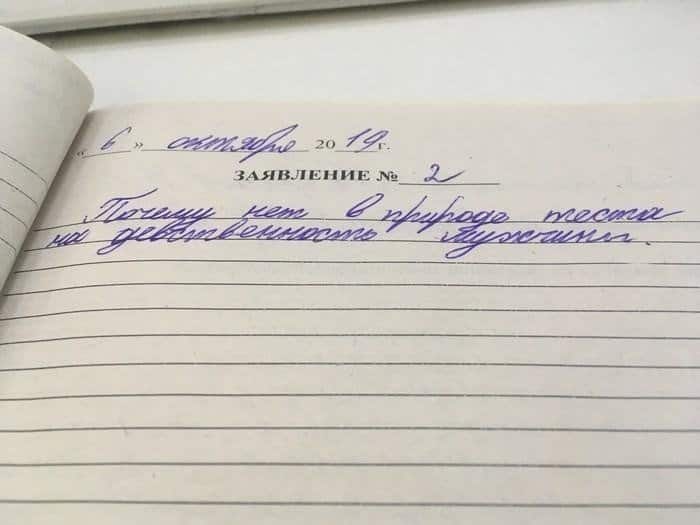 « 6 » октября 2019 г.
ЗАЯВЛЕНИЕ № 2
Почему нет в природе теста
на девственность мужчины.